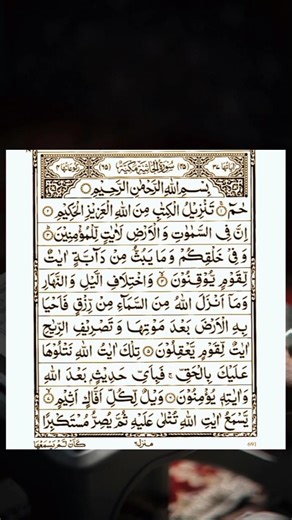 اٰيَاتُهَا ٣٧ (٤٥) سُوْرَةُ الْجَاثِيَةِ مَكِّيَّةٌ (٦٥) رُكُوْعَاتُهَا ٤
بِسْمِ اللّٰهِ الرَّحْمٰنِ الرَّحِيْمِ
حٰمٓ ۚ تَنْزِيْلُ الْكِتٰبِ مِنَ اللّٰهِ الْعَزِيْزِ الْحَكِيْمِ
اِنَّ فِى السَّمٰوٰتِ وَ الْاَرْضِ لَاٰيٰتٍ لِّلْمُؤْمِنِيْنَ
وَ فِىْ خَلْقِكُمْ وَ مَا يَبُثُّ مِنْ دَآبَّةٍ اٰيٰتٌ
لِّقَوْمٍ يُّوْقِنُوْنَ وَ اخْتِلَافِ الَّيْلِ وَ النَّهَارِ
وَ مَاۤ اَنْزَلَ اللّٰهُ مِنَ السَّمَآءِ مِنْ رِّزْقٍ فَاَحْيَا
بِهِ الْاَرْضَ بَعْدَ مَوْتِهَا وَ تَصْرِيْفِ الرِّيٰحِ
اٰيٰتٌ لِّقَوْمٍ يَّعْقِلُوْنَ تِلْكَ اٰيٰتُ اللّٰهِ نَتْلُوْهَا
عَلَيْكَ بِالْحَقِّ ۚ فَبِاَىِّ حَدِيْثٍۭ بَعْدَ اللّٰهِ
وَ اٰيٰتِهٖ يُؤْمِنُوْنَ وَيْلٌ لِّكُلِّ اَفَّاكٍ اَثِيْمٍ
يَّسْمَعُ اٰيٰتِ اللّٰهِ تُتْلٰى عَلَيْهِ ثُمَّ يُصِرُّ مُسْتَكْبِرًا
كَاَنْ لَّمْ يَسْمَعْهَا منزل